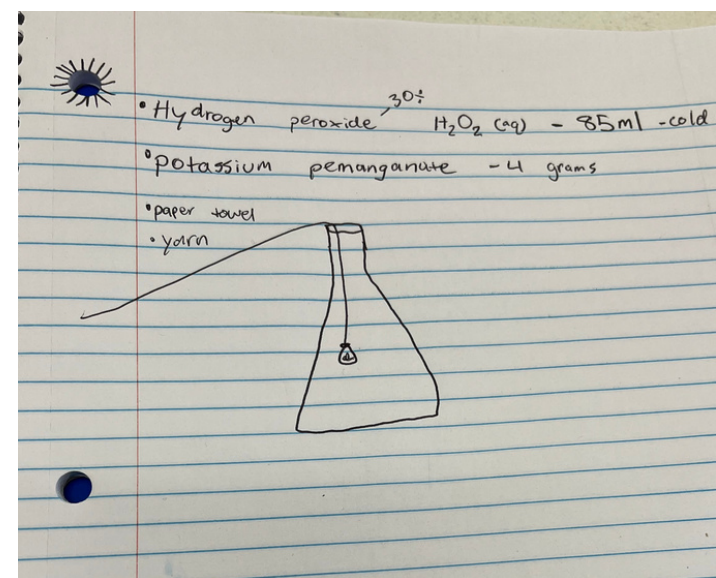 • Hydrogen peroxide, 30% H₂O₂ (aq) - 85ml - cold
• potassium pemanganate - 4 grams
• paper towel
• yarn